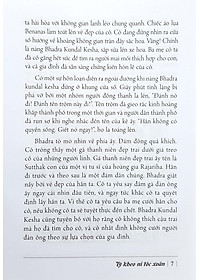 ta hài hòa với không gian lành lẻo chung quanh. Chiếc áo lụa
Benaras làm toát lên vẻ đẹp của cô. Cô đang đứng nhìn ra cửa
sổ hướng về khoảng không gian trần đầy sắc hoa. Vâng! Chính
là nàng Bhadra Kundal Kesha, sắp sửa lên xe hoa. Ba mẹ cô ta
đã cố gắng hết sức để tìm ra người mai mối thích hợp cho con,
và cả gia đình đã sẵn sàng chứng kiến hôn lễ của cô.
Có một sự hỗn loạn diễn ra ngoài đường khi nàng Bhadra
kundal kesha đang đứng ở khung cửa sổ. Giây phút tĩnh lặng bị
phá vỡ bởi một nhóm người đông thanh la lên, "Đánh nó
đi! Đánh tên trộm này đi!". Tên trộm đã gieo rắc kinh hoàng
khắp thành phố trong một thời gian và người dân thành phố
đã run sợ khi nghe nhắc đến tên của kẻ ấy. "Hắn không có
quyền sống. Giết nó ngay!", họ la toáng lên.
Bhadra tò mò nhìn về phía ấy. Đám đông quá khích.
Cô trông thấy một gã thanh niên đẹp trai dưới giá treo
cổ của những người lính. Gã thanh niên đẹp trai ấy tên là
Sutthak con của một vị tu sĩ hoàng gia Rajaniha. Hắn đi
trước và theo sau là một đám dân chúng. Bhadra giật
nảy bởi vẻ đẹp của hắn ta. Cô ta yêu say đắm gã đàn ông
ấy ngay cái nhìn đầu tiên, và ngay tức khắc cô ta quyết
định lấy hắn ta. Vì thế cô ta yêu cầu ba mẹ cưới hắn cho
cô, nếu không cô ta sẽ tuyệt thực đến chết. Bhadra Kundal
Kesha cũng tuyên bố với họ rằng cô không thích cái của trai
mà họ đã tìm cho cô, và cô nhất định không cưới người
đàn ông theo sự chọn lựa của gia đình.
Tỳ kheo ni tóc xoăn 7